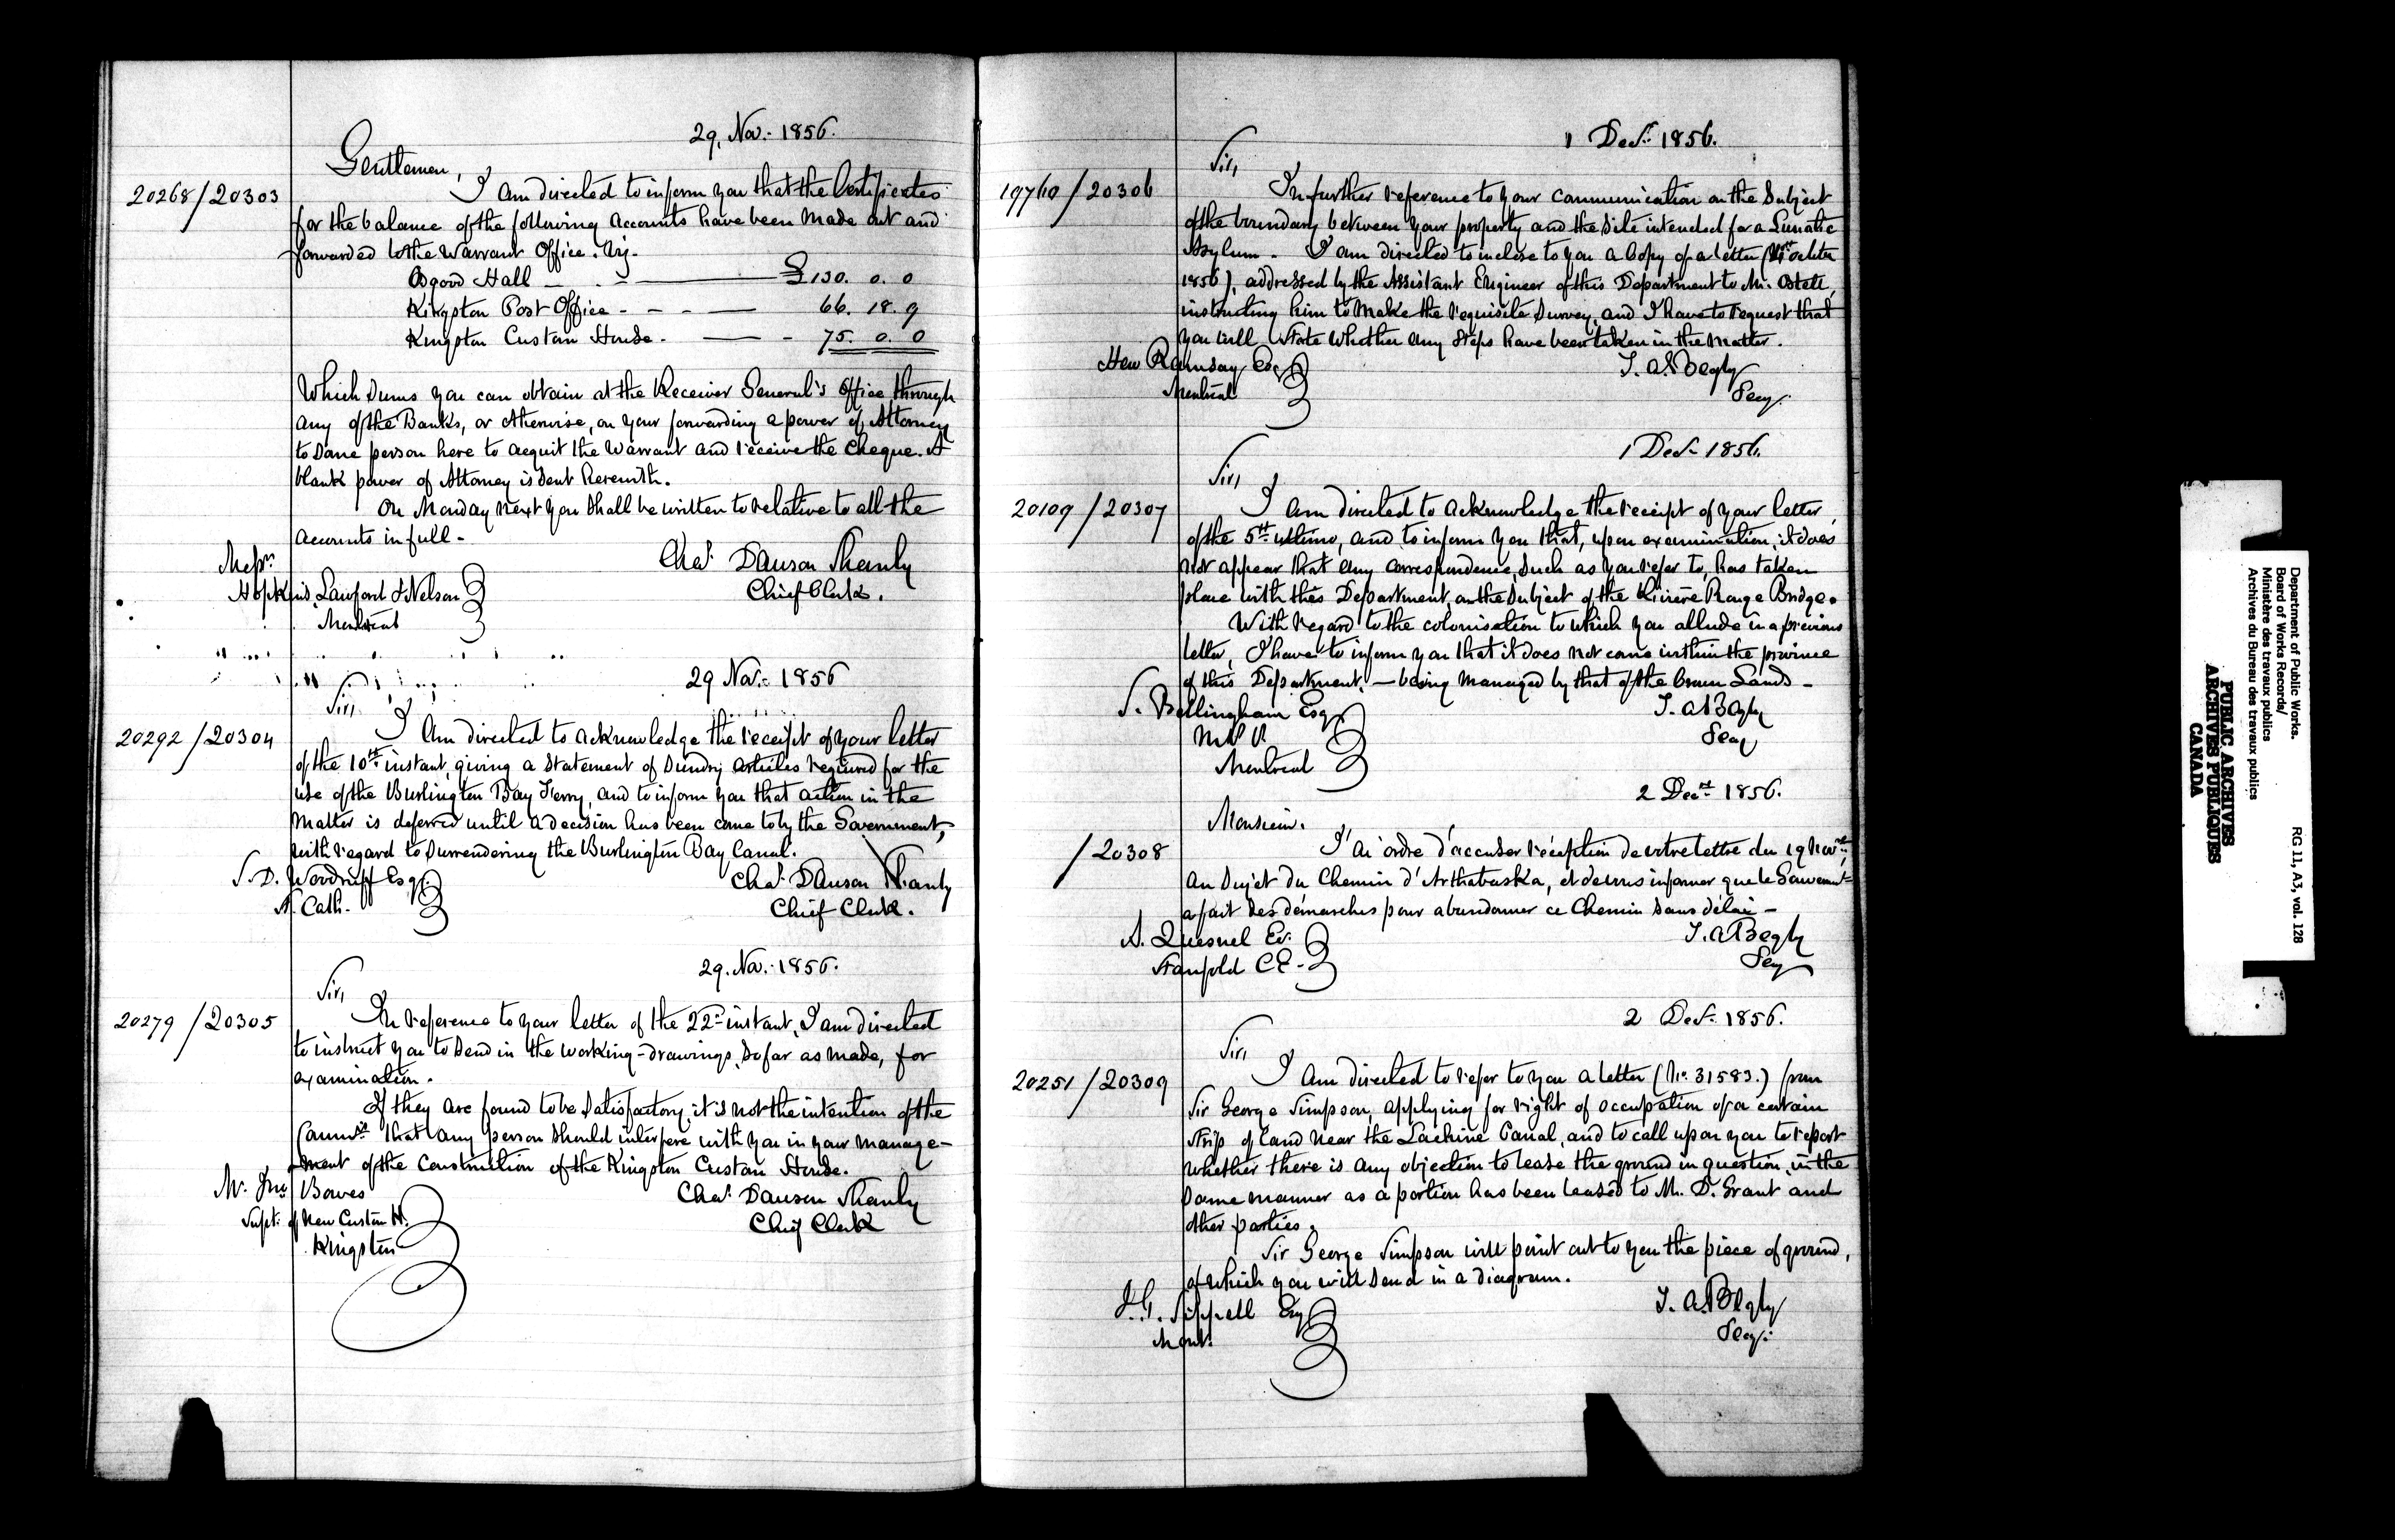 29. Nov. 1856.
Gentlemen,
20268/20303
I am directed to inform you that the Certificates
for the balance of the following Accounts have been made out and
forwarded to the Warrant Office. Viz.
Osgood Hall £130. 0. 0
Kingston Post Office - - - 66. 18. 9
Kingston Custom House. - 75. 0. 0
Which Sums you can obtain at the Receiver General's Office through
any of the Banks, or otherwise, on your forwarding a power of Attorney
to some person here to acquit the Warrant and receive the Cheque. A
blank power of Attorney is sent herewith.
On Monday next you shall be written to relative to all the
accounts in full -
Messrs.
Hopkins, Lawford & Nelson
Montreal
Chas. Dawson Shanly
Chief Clerk.
29 Nov. 1856
Sir,
20292/20304
I am directed to acknowledge the receipt of your letter
of the 10th instant, giving a Statement of Sundry articles required for the
use of the Burlington Bay Ferry, and to inform you that action in the
matter is deferred until a decision has been come to by the Government,
with regard to Surrendering the Burlington Bay Canal.
S. D. Woodruff Esq.
St. Cath.
Chas. Dawson Shanly
Chief Clerk.
29. Nov. 1856.
Sir,
20279/20305
In reference to your letter of the 22d instant, I am directed
to instruct you to send in the working-drawings, so far as made, for
examination.
If they are found to be satisfactory, it is not the intention of the
Commrs that any person should interfere with you in your manage-
ment of the Construction of the Kingston Custom House.
Mr. Jno Bowes
Supt. of New Custom H.
Kingston
Chas. Dawson Shanly
Chief Clerk
1 Decr. 1856.
Sir,
19760/20306
In further reference to your communication on the Subject
of the boundary between your property and the site intended for a Lunatic
Asylum. I am directed to inclose to you a Copy of a letter October
1856), addressed by the Assistant Engineer of this Department to Mr. Ostell,
instructing him to make the requisite Survey, and I have to request that
you will State whether any steps have been taken in the matter.
Hew Ramsay Esq
Montreal
T. A. Begly
Secy.
1 Decr. 1856.
Sir,
20109/20307
I am directed to acknowledge the receipt of your letter
of the 5th ultimo, and to inform you that, upon examination, it does
not appear that any correspondence, such as you refer to, has taken
place with this Department, on the subject of the Rivière Rouge Bridge.
With regard to the colonisation to which you allude in a previous
letter, I have to inform you that it does not come within the province
of this Department, - being managed by that of the Crown Lands -
S. Bellingham Esq
M.P.P.
Montreal
T. A. Begly
Secy
2 Decr. 1856.
Monsieur.
/20308
J'ai ordre d'accuser réception de votre lettre du 19 Novre,
au Sujet du Chemin d'Arthabaska, et de vous informer que le Gouvernmt
a fait des démarches pour abandonner ce Chemin sans délai -
A. Quesnel Er.
Stanfold C.E.
T. A. Begly
Secy
2 Decr. 1856.
Sir,
20251/20309
I am directed to refer to you a letter (No. 31583.) from
Sir George Simpson, applying for right of occupation of a certain
strip of land near the Lachine Canal, and to call upon you to report
whether there is any objection to lease the ground in question, in the
same manner as a portion has been leased to Mr. D. Grant and
other parties.
Sir George Simpson will point out to you the piece of ground,
of which you will send in a diagram.
J.G. Sippell Esq
Mont.
T. A. Begly
Secy.
Department of Public Works.
Board of Works Records/
Ministère des travaux publics
Archives du Bureau des travaux publics
RG 11, A3, vol. 128
PUBLIC ARCHIVES
ARCHIVES PUBLIQUES
CANADA